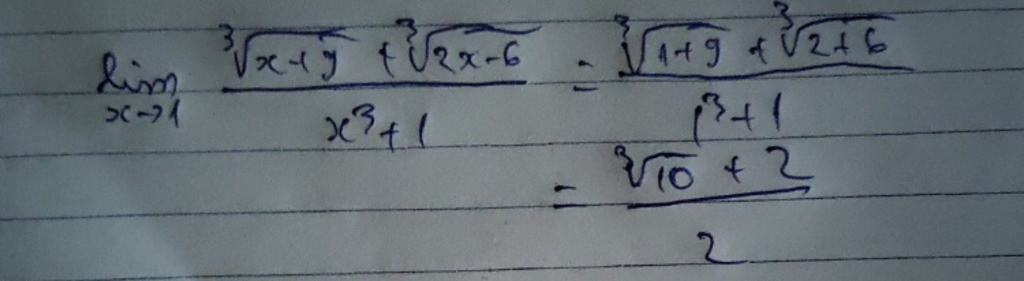 lim x→1 (∛(x+9) + ∛(2x-6)) / (x³+1) = (∛(1+9) + ∛(2+6)) / (1³+1)
= (∛10 + 2) / 2